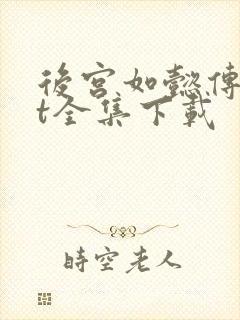 後宮如懿傳
t全集下載
時空老人